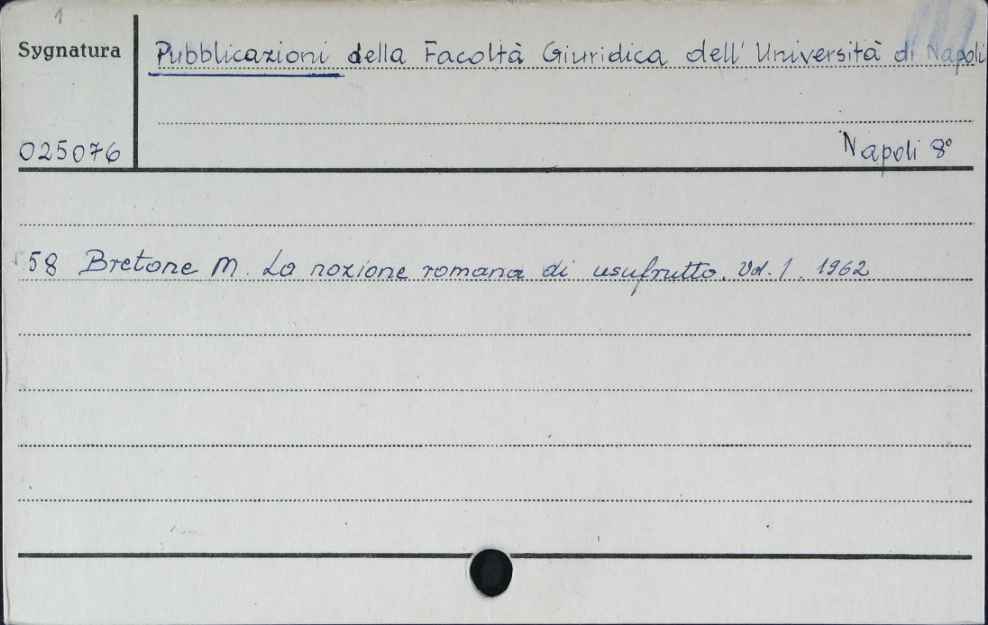 1
Sygnatura Pubblicazioni della Facoltà Giuridica dell' Università di Napoli
025076 Napoli 8°
58 Bretone M. La nozione romana di usufrutto. Vol. 1. 1962